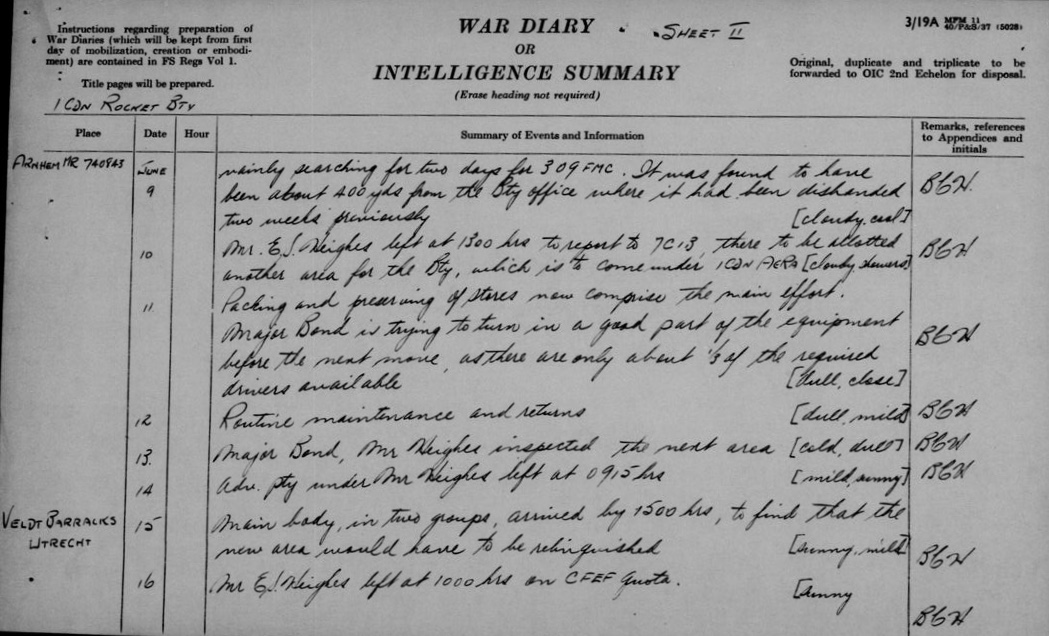 Instructions regarding preparation of
War Diaries (which will be kept from first
day of mobilization, creation or embodi-
ment) are contained in FS Regs Vol 1.
Title pages will be prepared.
1 CDN ROCKET BTY
WAR DIARY
OR
INTELLIGENCE SUMMARY
(Erase heading not required)
SHEET II
3/19A MFM 11
40/P&S/37 (5028)
Original, duplicate and triplicate to be
forwarded to OIC 2nd Echelon for disposal.
Place Date Hour Summary of Events and Information Remarks, references
to Appendices and
initials
ARNHEM MR 740843 JUNE
9 vainly searching for two days for 309 FMC. It was found to have
been about 400 yds from the Bty office where it had been disbanded BGH.
two weeks previously [cloudy, cool]
10 Mr. E.J. Heighes left at 1300 hrs to report to 7C13, there to be allotted BGH
another area for the Bty, which is to come under 1 CDN AGRA [cloudy, showers]
11 Packing and preserving of stores now comprise the main effort.
Major Bond is trying to turn in a good part of the equipment BGH
before the next move, as there are only about 1/3 of the required
drivers available [dull, close]
12 Routine maintenance and returns [dull, mild] BGH
13. Major Bond, Mr Heighes inspected the next area [cold, dull] BGH
14 Adv. pty under Mr Heighes left at 0915 hrs [mild, sunny] BGH
VELDT BARRACKS
UTRECHT
15 Main body, in two groups, arrived by 1500 hrs, to find that the
new area would have to be relinquished [sunny, mild] BGH
16 Mr E.J. Heighes left at 1000 hrs on CFEF quota. [sunny
BGH